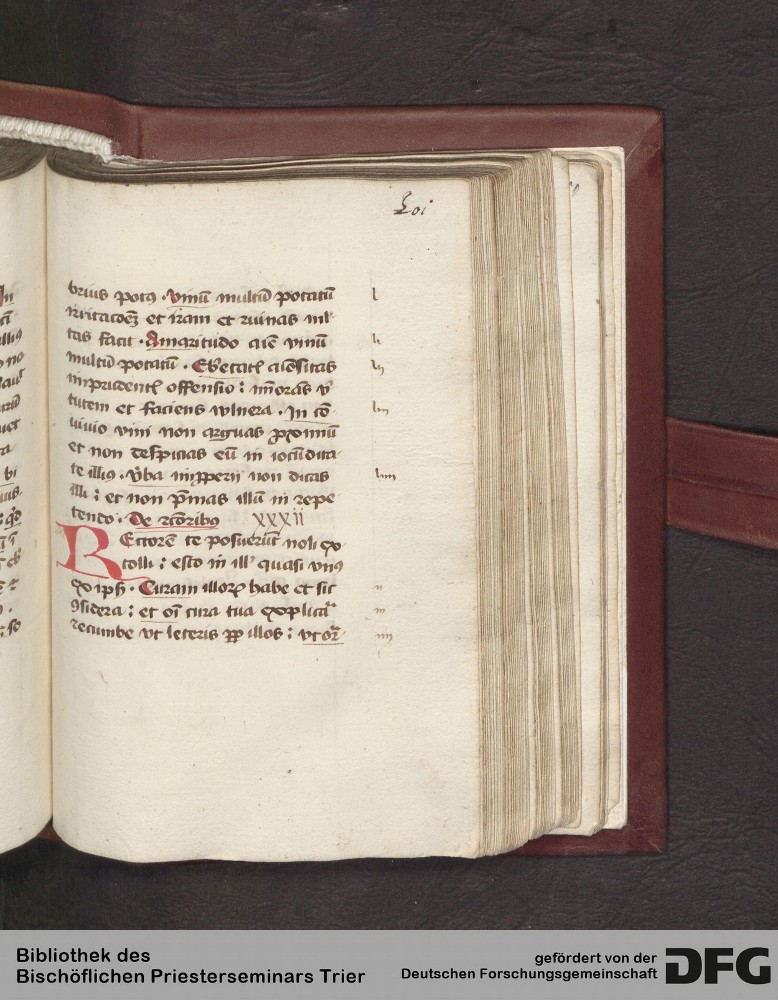 Loi
brius potꝰ · vinū multū potatū l
irritacōeꝫ et iram et ruinas ml̄
tas facit · Amaritudo aīe vinū li
multū potatū · Ebꝛietatꝭ aīositas lij
imprudentꝭ offensio : mīorās v̄
tutem et faciens vulnera · In cō liij
uiuio vini non arguas proximū
et non despicias eū in iocūdita
te illiꝰ · v̄ba inproperij non dicas liiij
illi : et non p̄mas illū in repe
tendo · De rc̄oribꝰ XXXII
REctorē te posuerūt noli ex
tolli : esto in illꝭ quasi vnꝰ
ex ipsꝭ · Curam illoꝝ habe et sic ij
ꝯsidera : et oī cura tua explicita iij
recumbe vt leteris ꝓp illos : vt or̄ iiij
In
bi
Bibliothek des
Bischöflichen Priesterseminars Trier
gefördert von der
Deutschen Forschungsgemeinschaft
DFG